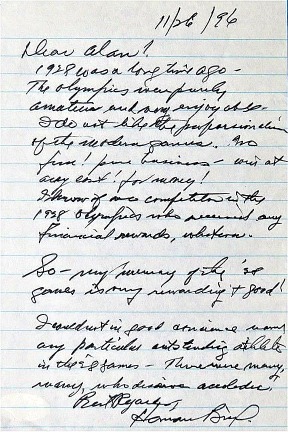 11/26/96
Dear Alan!
1928 was a long time ago -
The Olympics were purely
amateur and very enjoyable.
I do not like the professionalism
of the modern games. No
fun! pure business - win at
any cost! for money!
I know of no competitor in the
1928 Olympics who received any
financial rewards, whatever.
So - my memory of the '28
games is very rewarding & good!
I couldn't in good conscience name
any particular outstanding athlete
in the '28 games - There were many,
many, who deserve accolades.
Best Regards,